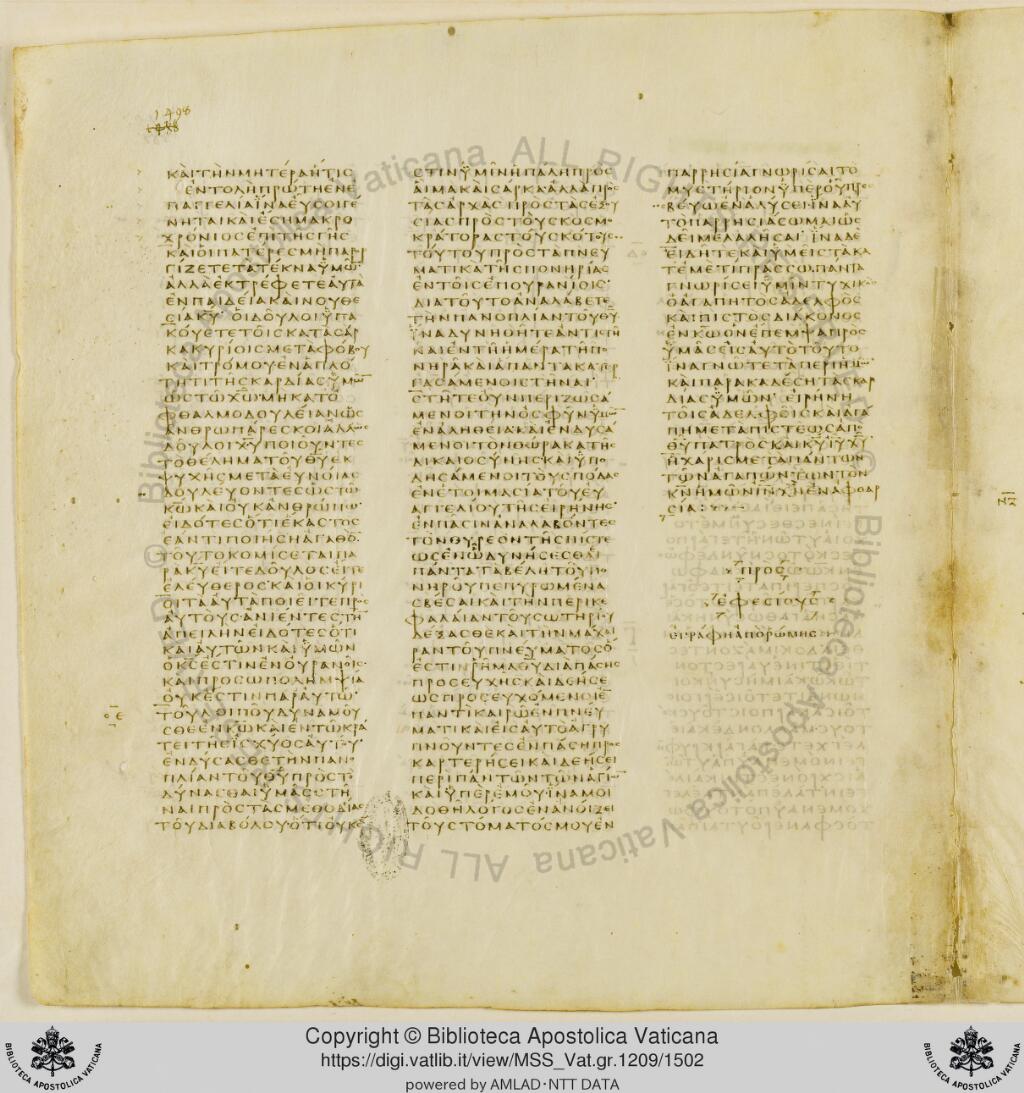 1498
ΚΑΙΤΗΝΜΗΤΕΡΑΗΤΙΣ
ΕΝΤΟΛΗΠΡΩΤΗΕΝΕ
ΠΑΓΓΕΛΙΑΙΝΑΕΥΣΟΙΓΕ
ΝΗΤΑΙΚΑΙΕΣΗΜΑΚΡΟ
ΧΡΟΝΙΟΣΕΠΙΤΗΣΓΗΣ
ΚΑΙΟΙΠΑΤΕΡΕΣΜΗΠΑΡΡ
ΓΙΖΕΤΕΤΑΤΕΚΝΑΥΜΩ̅
ΑΛΛΑΕΚΤΡΕΦΕΤΕΑΥΤΑ
ΕΝΠΑΙΔΕΙΑΚΑΙΝΟΥΘΕ
ΣΙΑΚ̅Υ̅ ΟΙΔΟΥΛΟΙΥΠΑ
ΚΟΥΕΤΕΤΟΙΣΚΑΤΑΣΑΡ
ΚΑΚΥΡΙΟΙΣΜΕΤΑΦΟΒΟΥ
ΚΑΙΤΡΟΜΟΥΕΝΑΠΛΟ
ΤΗΤΙΤΗΣΚΑΡΔΙΑΣΥΜΩ̅
ΩΣΤΩΧ̅Ω̅ΜΗΚΑΤΟ
ΦΘΑΛΜΟΔΟΥΛΕΙΑΝΩΣ
ΑΝΘΡΩΠΑΡΕΣΚΟΙΑΛΛΩΣ
ΔΟΥΛΟΙΧ̅Υ̅ΠΟΙΟΥΝΤΕΣ
ΤΟΘΕΛΗΜΑΤΟΥΘ̅Υ̅ΕΚ
ΨΥΧΗΣΜΕΤΕΥΝΟΙΑΣ
ΔΟΥΛΕΥΟΝΤΕΣΩΣΤΩ
Κ̅Ω̅ΚΑΙΟΥΚΑΝΘΡΩΠΩ
ΕΙΔΟΤΕΣΟΤΙΕΚΑΣΤΟΣ
ΕΑΝΤΙΠΟΙΗΣΗΑΓΑΘΟ̅
ΤΟΥΤΟΚΟΜΙΣΕΤΑΙΠΑ
ΡΑΚ̅Υ̅ΕΙΤΕΔΟΥΛΟΣΕΙΤΕ
ΕΛΕΥΘΕΡΟΣΚΑΙΟΙΚΥΡΙ
ΟΙΤΑΑΥΤΑΠΟΙΕΙΤΕΠΡΟΣ
ΑΥΤΟΥΣΑΝΙΕΝΤΕΣΤΗ̅
ΑΠΕΙΛΗΝΕΙΔΟΤΕΣΟΤΙ
ΚΑΙΑΥΤΩΝΚΑΙΥΜΩΝ
ΟΚ̅Σ̅ΕΣΤΙΝΕΝΟΥΡΑΝΟΙΣ
ΚΑΙΠΡΟΣΩΠΟΛΗΜΨΙΑ
ΟΥΚΕΣΤΙΝΠΑΡΑΥΤΩ
ΤΟΥΛΟΙΠΟΥΔΥΝΑΜΟΥ
ΣΘΕΕΝΚ̅Ω̅ΚΑΙΕΝΤΩΚΡΑ
ΤΕΙΤΗΣΙΣΧΥΟΣΑΥΤΟΥ
ΕΝΔΥΣΑΣΘΕΤΗΝΠΑΝ
ΠΛΙΑΝΤΟΥΘ̅Υ̅ΠΡΟΣΤΟ
ΔΥΝΑΣΘΑΙΥΜΑΣΣΤΗ
ΝΑΙΠΡΟΣΤΑΣΜΕΘΟΔΙΑΣ
ΤΟΥΔΙΑΒΟΛΟΥΟΤΙΟΥΚΕ
ΣΤΙΝΥΜΙΝΗΠΑΛΗΠΡΟΣ
ΑΙΜΑΚΑΙΣΑΡΚΑΑΛΛΑΠΡΟΣ
ΤΑΣΑΡΧΑΣΠΡΟΣΤΑΣΕΞΟΥ
ΣΙΑΣΠΡΟΣΤΟΥΣΚΟΣΜΟ
ΚΡΑΤΟΡΑΣΤΟΥΣΚΟΤΟΥΣ
ΤΟΥΤΟΥΠΡΟΣΤΑΠΝΕΥ
ΜΑΤΙΚΑΤΗΣΠΟΝΗΡΙΑΣ
ΕΝΤΟΙΣΕΠΟΥΡΑΝΙΟΙΣ
ΔΙΑΤΟΥΤΟΑΝΑΛΑΒΕΤΕ
ΤΗΝΠΑΝΟΠΛΙΑΝΤΟΥΘ̅Υ̅
ΙΝΑΔΥΝΗΘΗΤΕΑΝΤΙΣΤΗ
ΚΑΙΕΝΤΗΗΜΕΡΑΤΗΠΟ
ΝΗΡΑΚΑΙΑΠΑΝΤΑΚΑΤΕΡ
ΓΑΣΑΜΕΝΟΙΣΤΗΝΑΙ
ΣΤΗΤΕΟΥΝΠΕΡΙΖΩΣΑ
ΜΕΝΟΙΤΗΝΟΣΦΥΝΥΜΩ̅
ΕΝΑΛΗΘΕΙΑΚΑΙΕΝΔΥΣΑ
ΜΕΝΟΙΤΟΝΘΩΡΑΚΑΤΗΣ
ΔΙΚΑΙΟΣΥΝΗΣΚΑΙΥΠΟ
ΔΗΣΑΜΕΝΟΙΤΟΥΣΠΟΔΑΣ
ΕΝΕΤΟΙΜΑΣΙΑΤΟΥΕΥ
ΑΓΓΕΛΙΟΥΤΗΣΕΙΡΗΝΗΣ
ΕΝΠΑΣΙΝΑΝΑΛΑΒΟΝΤΕΣ
ΤΟΝΘΥΡΕΟΝΤΗΣΠΙΣΤΕ
ΩΣΕΝΩΔΥΝΗΣΕΣΘΑΙ
ΠΑΝΤΑΤΑΒΕΛΗΤΟΥΠΟ
ΝΗΡΟΥΠΕΠΥΡΩΜΕΝΑ
ΣΒΕΣΑΙΚΑΙΤΗΝΠΕΡΙΚΕ
ΦΑΛΑΙΑΝΤΟΥΣΩΤΗΡΙΟΥ
ΔΕΞΑΣΘΕΚΑΙΤΗΝΜΑΧΑΙ
ΡΑΝΤΟΥΠΝΕΥΜΑΤΟΣΟ
ΕΣΤΙΝΡΗΜΑΘ̅Υ̅ΔΙΑΠΑΣΗΣ
ΠΡΟΣΕΥΧΗΣΚΑΙΔΕΗΣΕ
ΩΣΠΡΟΣΕΥΧΟΜΕΝΟΙΕ̅
ΠΑΝΤΙΚΑΙΡΩΕΝΠΝΕΥ
ΜΑΤΙΚΑΙΕΙΣΑΥΤΟΑΓΡΥ
ΠΝΟΥΝΤΕΣΕΝΠΑΣΗΠΡΟΣ
ΚΑΡΤΕΡΗΣΕΙΚΑΙΔΕΗΣΕΙ
ΠΕΡΙΠΑΝΤΩΝΤΩΝΑΓΙΩ̅
ΚΑΙΥΠΕΡΕΜΟΥΙΝΑΜΟΙ
ΔΟΘΗΛΟΓΟΣΕΝΑΝΟΙΞΕΙ
ΤΟΥΣΤΟΜΑΤΟΣΜΟΥΕΝ
ΠΑΡΡΗΣΙΑΓΝΩΡΙΣΑΙΤΟ
ΜΥΣΤΗΡΙΟΝΥΠΕΡΟΥΠΡΕ
ΣΒΕΥΩΕΝΑΛΥΣΕΙΙΝΑΑΥ
ΤΟΠΑΡΡΗΣΙΑΣΩΜΑΙΩΣ
ΔΕΙΜΕΛΑΛΗΣΑΙ ΙΝΑΔΕ
ΕΙΔΗΤΕΚΑΙΥΜΕΙΣΤΑΚΑ
ΤΕΜΕΤΙΠΡΑΣΣΩΠΑΝΤΑ
ΓΝΩΡΙΣΕΙΥΜΙΝΤΥΧΙΚΟΣ
ΟΑΓΑΠΗΤΟΣΑΔΕΛΦΟΣ
ΚΑΙΠΙΣΤΟΣΔΙΑΚΟΝΟΣ
ΕΝΚ̅Ω̅ΟΝΕΠΕΜΨΑΠΡΟΣ
ΥΜΑΣΕΙΣΑΥΤΟΤΟΥΤΟ
ΙΝΑΓΝΩΤΕΤΑΠΕΡΙΗΜΩ̅
ΚΑΙΠΑΡΑΚΑΛΕΣΗΤΑΣΚΑΡ
ΔΙΑΣΥΜΩΝ ΕΙΡΗΝΗ
ΤΟΙΣΑΔΕΛΦΟΙΣΚΑΙΑΓΑ
ΠΗΜΕΤΑΠΙΣΤΕΩΣΑΠΟ
Θ̅Υ̅ΠΑΤΡΟΣΚΑΙΚ̅Υ̅Ι̅Υ̅Χ̅Υ̅
ΗΧΑΡΙΣΜΕΤΑΠΑΝΤΩΝ
ΤΩΝΑΓΑΠΩΝΤΩΝΤΟΝ
Κ̅Ν̅ΗΜΩΝΙ̅Ν̅Χ̅Ν̅ΕΝΑΦΘΑΡ
ΣΙΑ
ΠΡΟΣ
ΕΦΕΣΙΟΥΣ
ΕΓΡΑΦΗΑΠΟΡΩΜΗΣ
Copyright © Biblioteca Apostolica Vaticana
https://digi.vatlib.it/view/MSS_Vat.gr.1209/1502
powered by AMLAD·NTT DATA
BIBLIOTECA APOSTOLICA VATICANA
BIBLIOTECA APOSTOLICA VATICANA